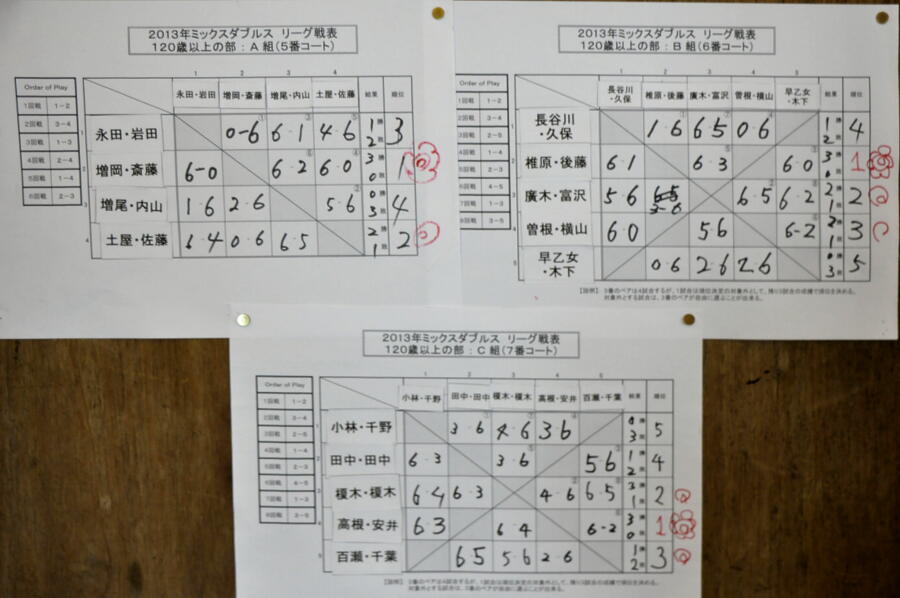 2013年ミックスダブルス リーグ戦表
120歳以上の部：A組（5番コート）
Order of Play
1回戦 1－2
2回戦 3－4
3回戦 1－3
4回戦 2－4
5回戦 1－4
6回戦 2－3
1 2 3 4
永田・岩田 増岡・斎藤 増尾・内山 土屋・佐藤 結果 順位
永田・岩田 0-6 6-1 4-6 1勝2敗 3
増岡・斎藤 6-0 6-2 6-0 3 0 1
増尾・内山 1 6 2-6 5-6 0勝3敗 4
土屋・佐藤 6 4 0 6 6-5 2勝1敗 2
2013年ミックスダブルス リーグ戦表
120歳以上の部：B組（6番コート）
Order of Play
1回戦 1－2
2回戦 3－4
3回戦 2－5
1 2 3 4 5
長谷川・久保 椎原・後藤 廣木・富沢 曽根・横山 早乙女・木下 結果 順位
長谷川・久保 1 6 6 5 0 6 1 2 4
椎原・後藤 6-1 6-3 6-0 3 0 1
廣木・富沢 5 6 3-6 6-5 6-2 2 1 2
曽根・横山 6-0 5 6 6-2 2 1 3
早乙女・木下 0-6 2-6 2 6 0 3 5
【説明】 3番のペアは4試合するが、1試合は順位決定の対象外として、残り3試合の成績で順位を決める。
対象外とする試合は、3番のペアが自由に選ぶことが出来る。
2013年ミックスダブルス リーグ戦表
120歳以上の部：C組（7番コート）
Order of Play
1回戦 1－2
2回戦 3－4
3回戦 2－5
4回戦 1－4
5回戦 2－3
6回戦 4－5
7回戦 1－3
8回戦 3－5
1 2 3 4 5
小林・千野 田中・田中 榎木・榎木 高根・安井 百瀬・千葉 結果 順位
小林・千野 3 6 4 6 3 6 0 3 5
田中・田中 6-3 3-6 5 6 1 2 4
榎木・榎木 6-4 6-3 4-6 6-5 3 1 2
高根・安井 6 3 6 4 6-2 3 0 1
百瀬・千葉 6 5 5-6 2-6 1 2 3
【説明】 3番のペアは4試合するが、1試合は順位決定の対象外として、残り3試合の成績で順位を決める。
対象外とする試合は、3番のペアが自由に選ぶことが出来る。